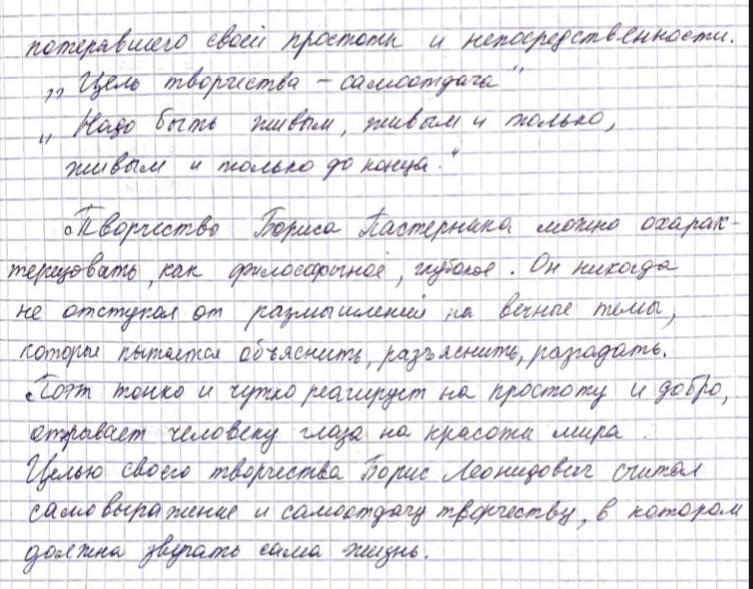 потерявшего своей простоты и непосредственности.
„Цель творчества – самоотдача"
„Надо быть живым, живым и только,
живым и только до конца."
Творчество Бориса Пастернака можно охарак-
теризовать, как философичное, глубокое. Он никогда
не отступал от размышлений на вечные темы,
которые пытается объяснить, разъяснить, разгадать.
Поэт тонко и чутко реагирует на простоту и добро,
открывает человеку глаза на красоты мира.
Целью своего творчества Борис Леонидович считал
самовыражение и самоотдачу творчеству, в котором
должна звучать сама жизнь.